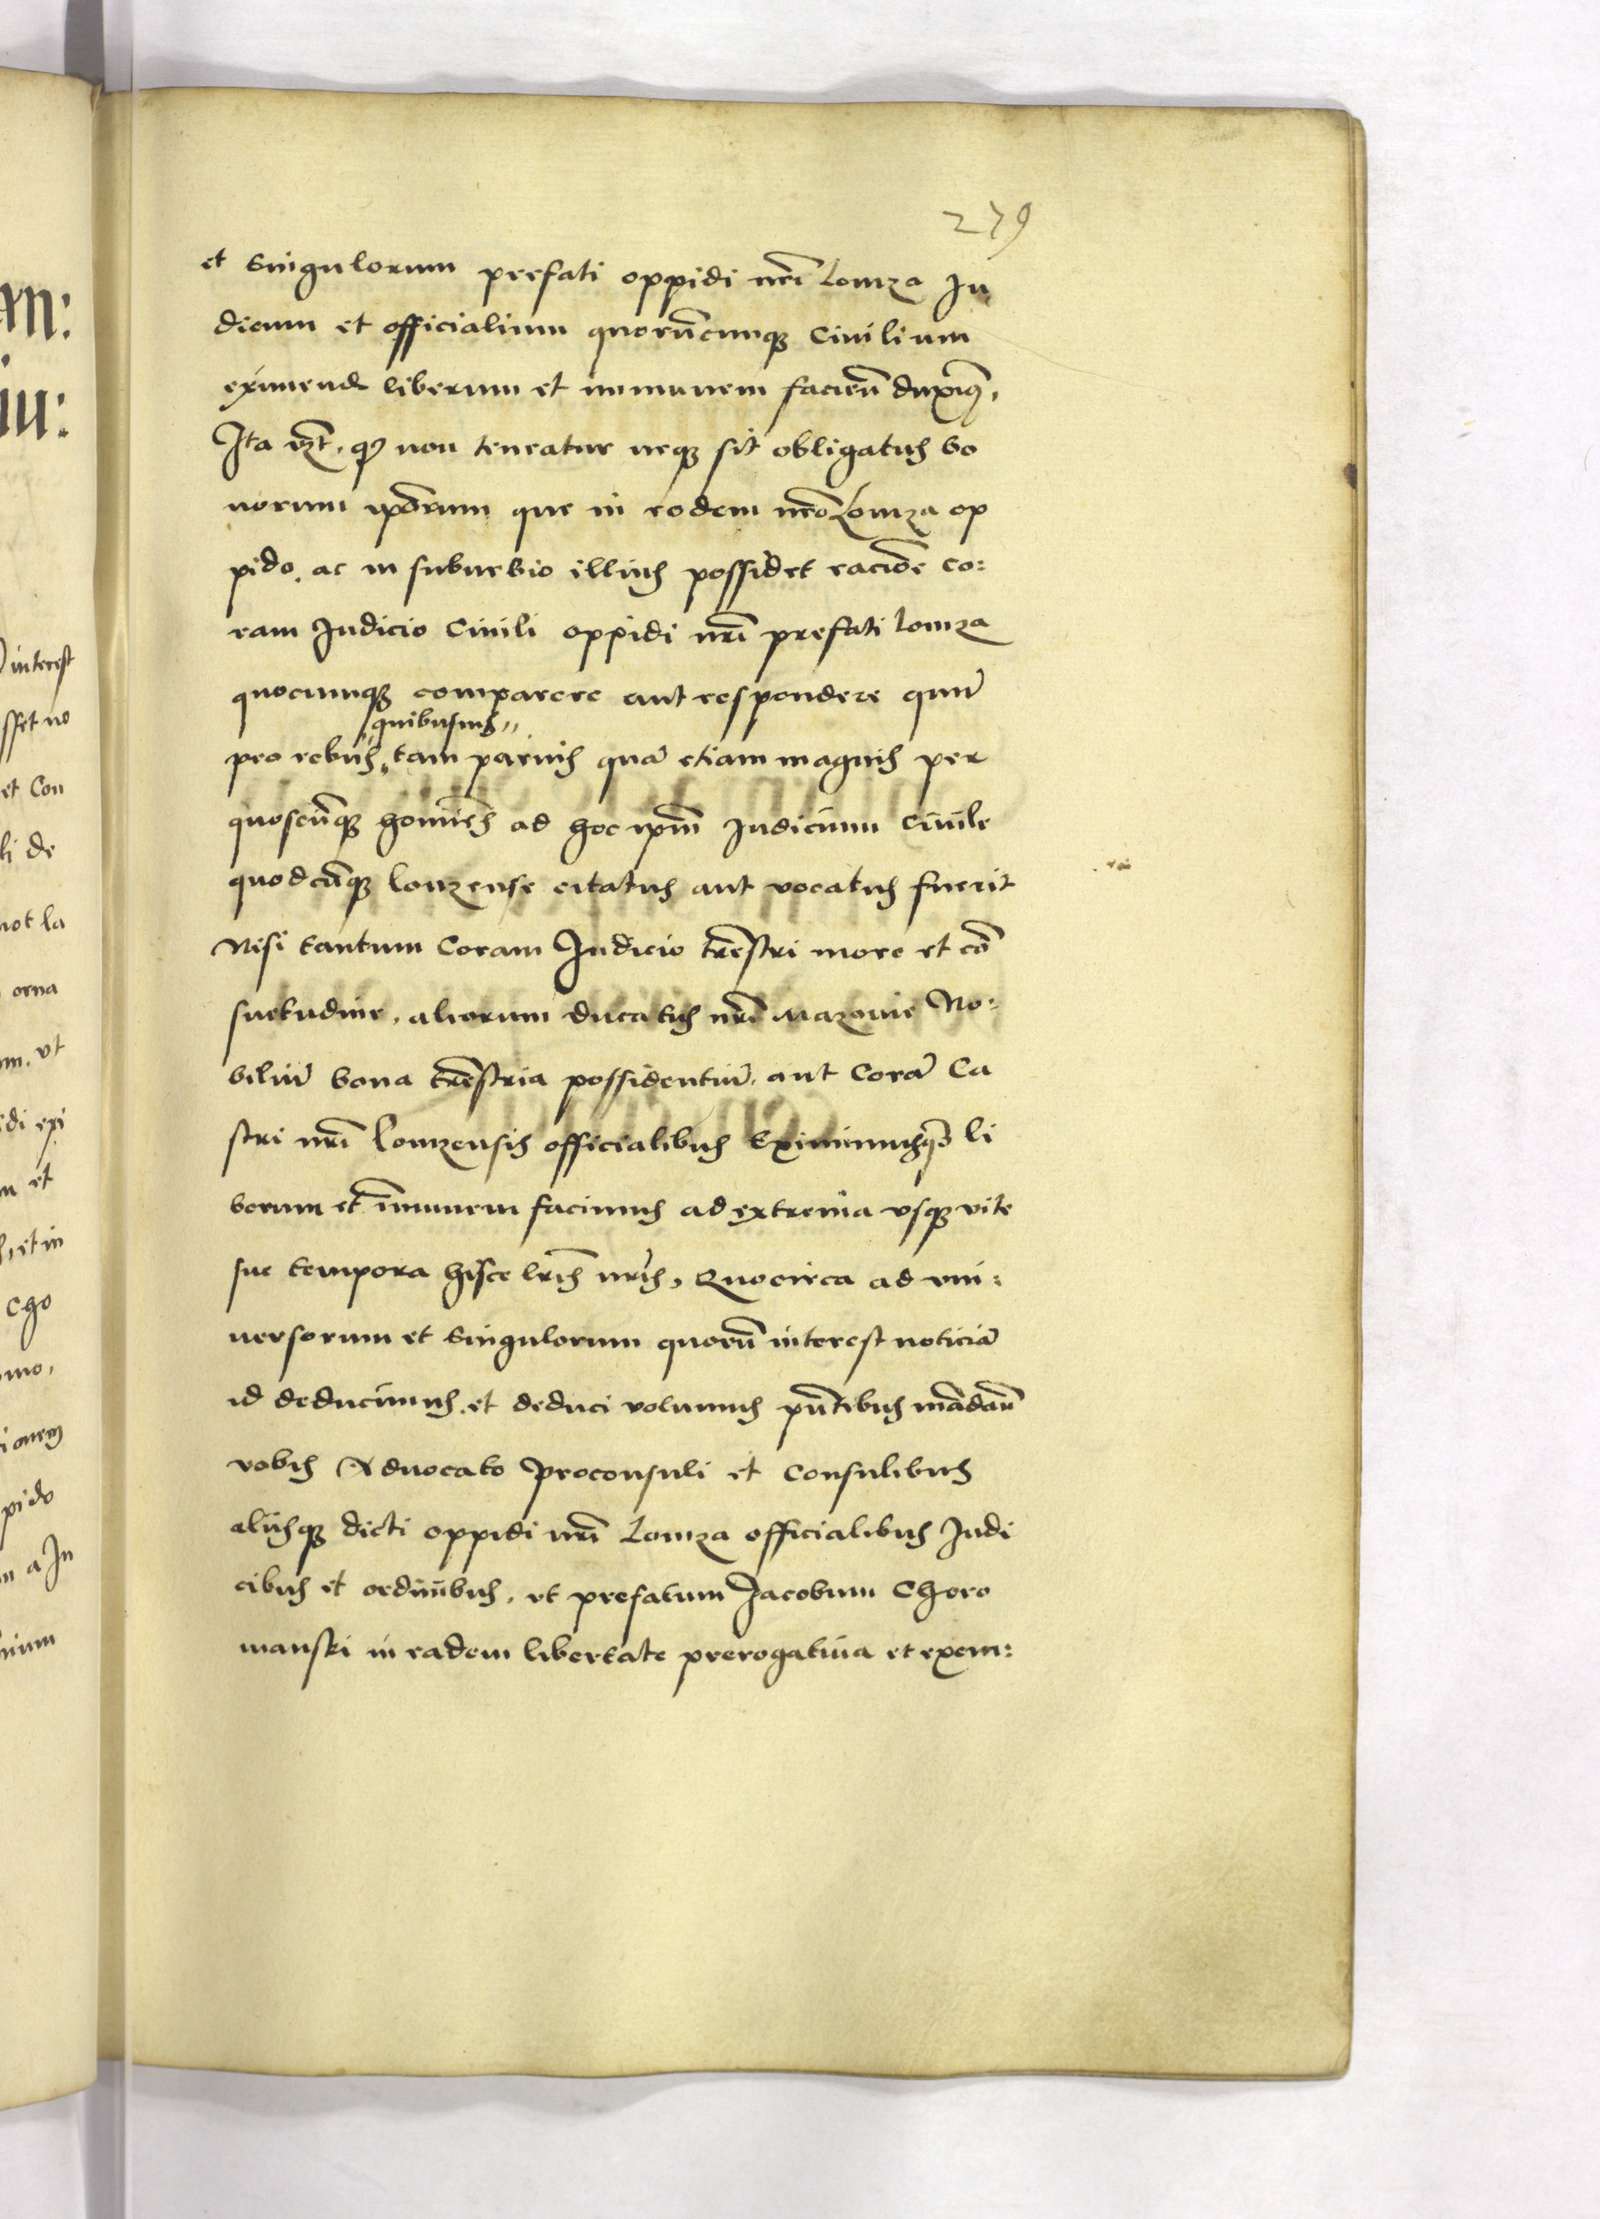 279
et singulorum prefati oppidi nrī Lomza Ju
dicum et officialium quorūcumqз Ciuilium
eximend liberum et immunem faciēn duximꝰ,
Ita vzt, qꝫ non teneatur neqз sit obligatus bo
norum ipōrum que in eodem nrō Lomza op
pido, ac in suburbio illius possidet racōne co:
ram Judicio Ciuili oppidi nrī prefati Lomza
quocumqз comparere aut respondere quiñ
quibusuis
pro rebus, tam paruis quā etiam magnis per
quoscūqз homīes ad hoc ipm̄ Judicium Ciuile
quodcūqз Lomzense citatus aut vocatus fuerit
Nisi tantum Coram Judicio trēstri more et cō
suetudine, aliorum ducatus nrī Mazouie No:
biliū bona trēstria possidentiū, aut Corā Ca
stri nrī Lomzensis officialibus Eximimusqз li
berum et īmunem facimus ad extrema vsqз vite
sue tempora hisce lrīs nrīs, Quocirca ad vni:
uersorum et singulorum quorū interest noticiā
id deducimus, et deduci volumus pn̄tibus mādan̄
vobis Aduocato Proconsuli et Consulibus
alijsqз dicti oppidi nrī Lomza officialibus Judi
cibus et ordinibus, vt prefatum Jacobum Choro
manski in eadem libertate prerogatiua et exem: